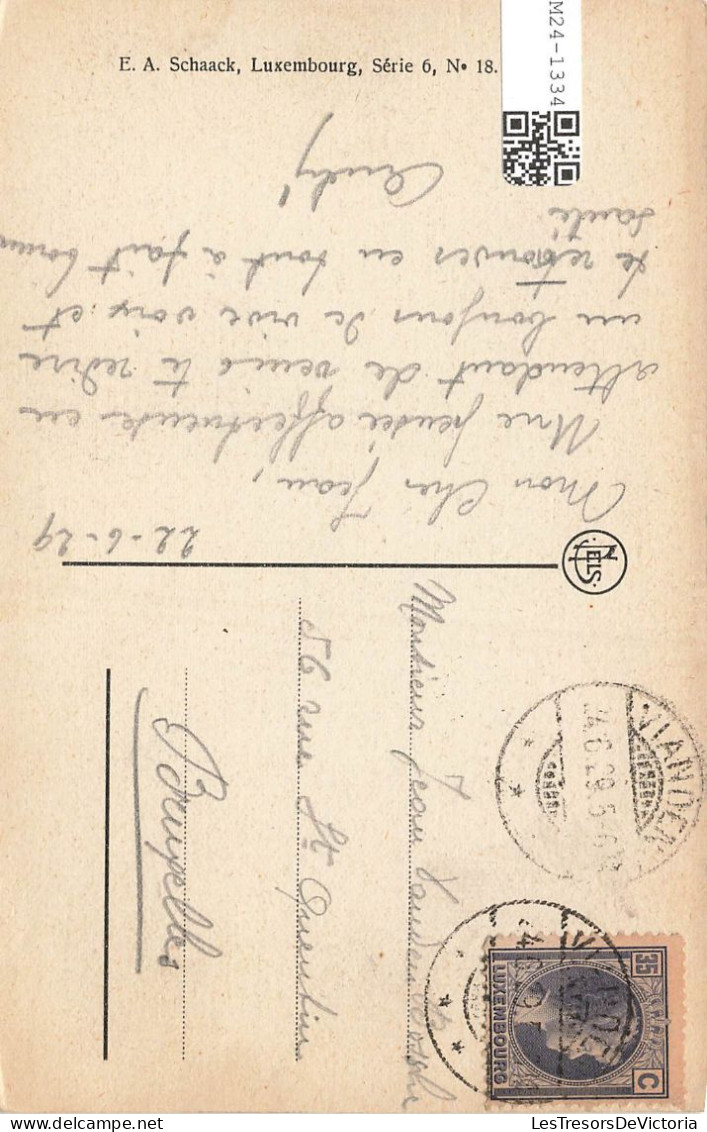 E. A. Schaack, Luxembourg, Série 6, N° 18.
M24-1334
22-6-29
Mon cher Jean,
Une pensée affectueuse en
attendant de venir te redire
un bonjour de vive voix et
te retrouver en tout à fait bonne
santé
NELS
Monsieur Jean
56 rue St Quentin
Bruxelles
VIANDEN
24.6.29.5-6
LUXEMBOURG
35 C
LesTresorsDeVictoria
www.delcampe.net